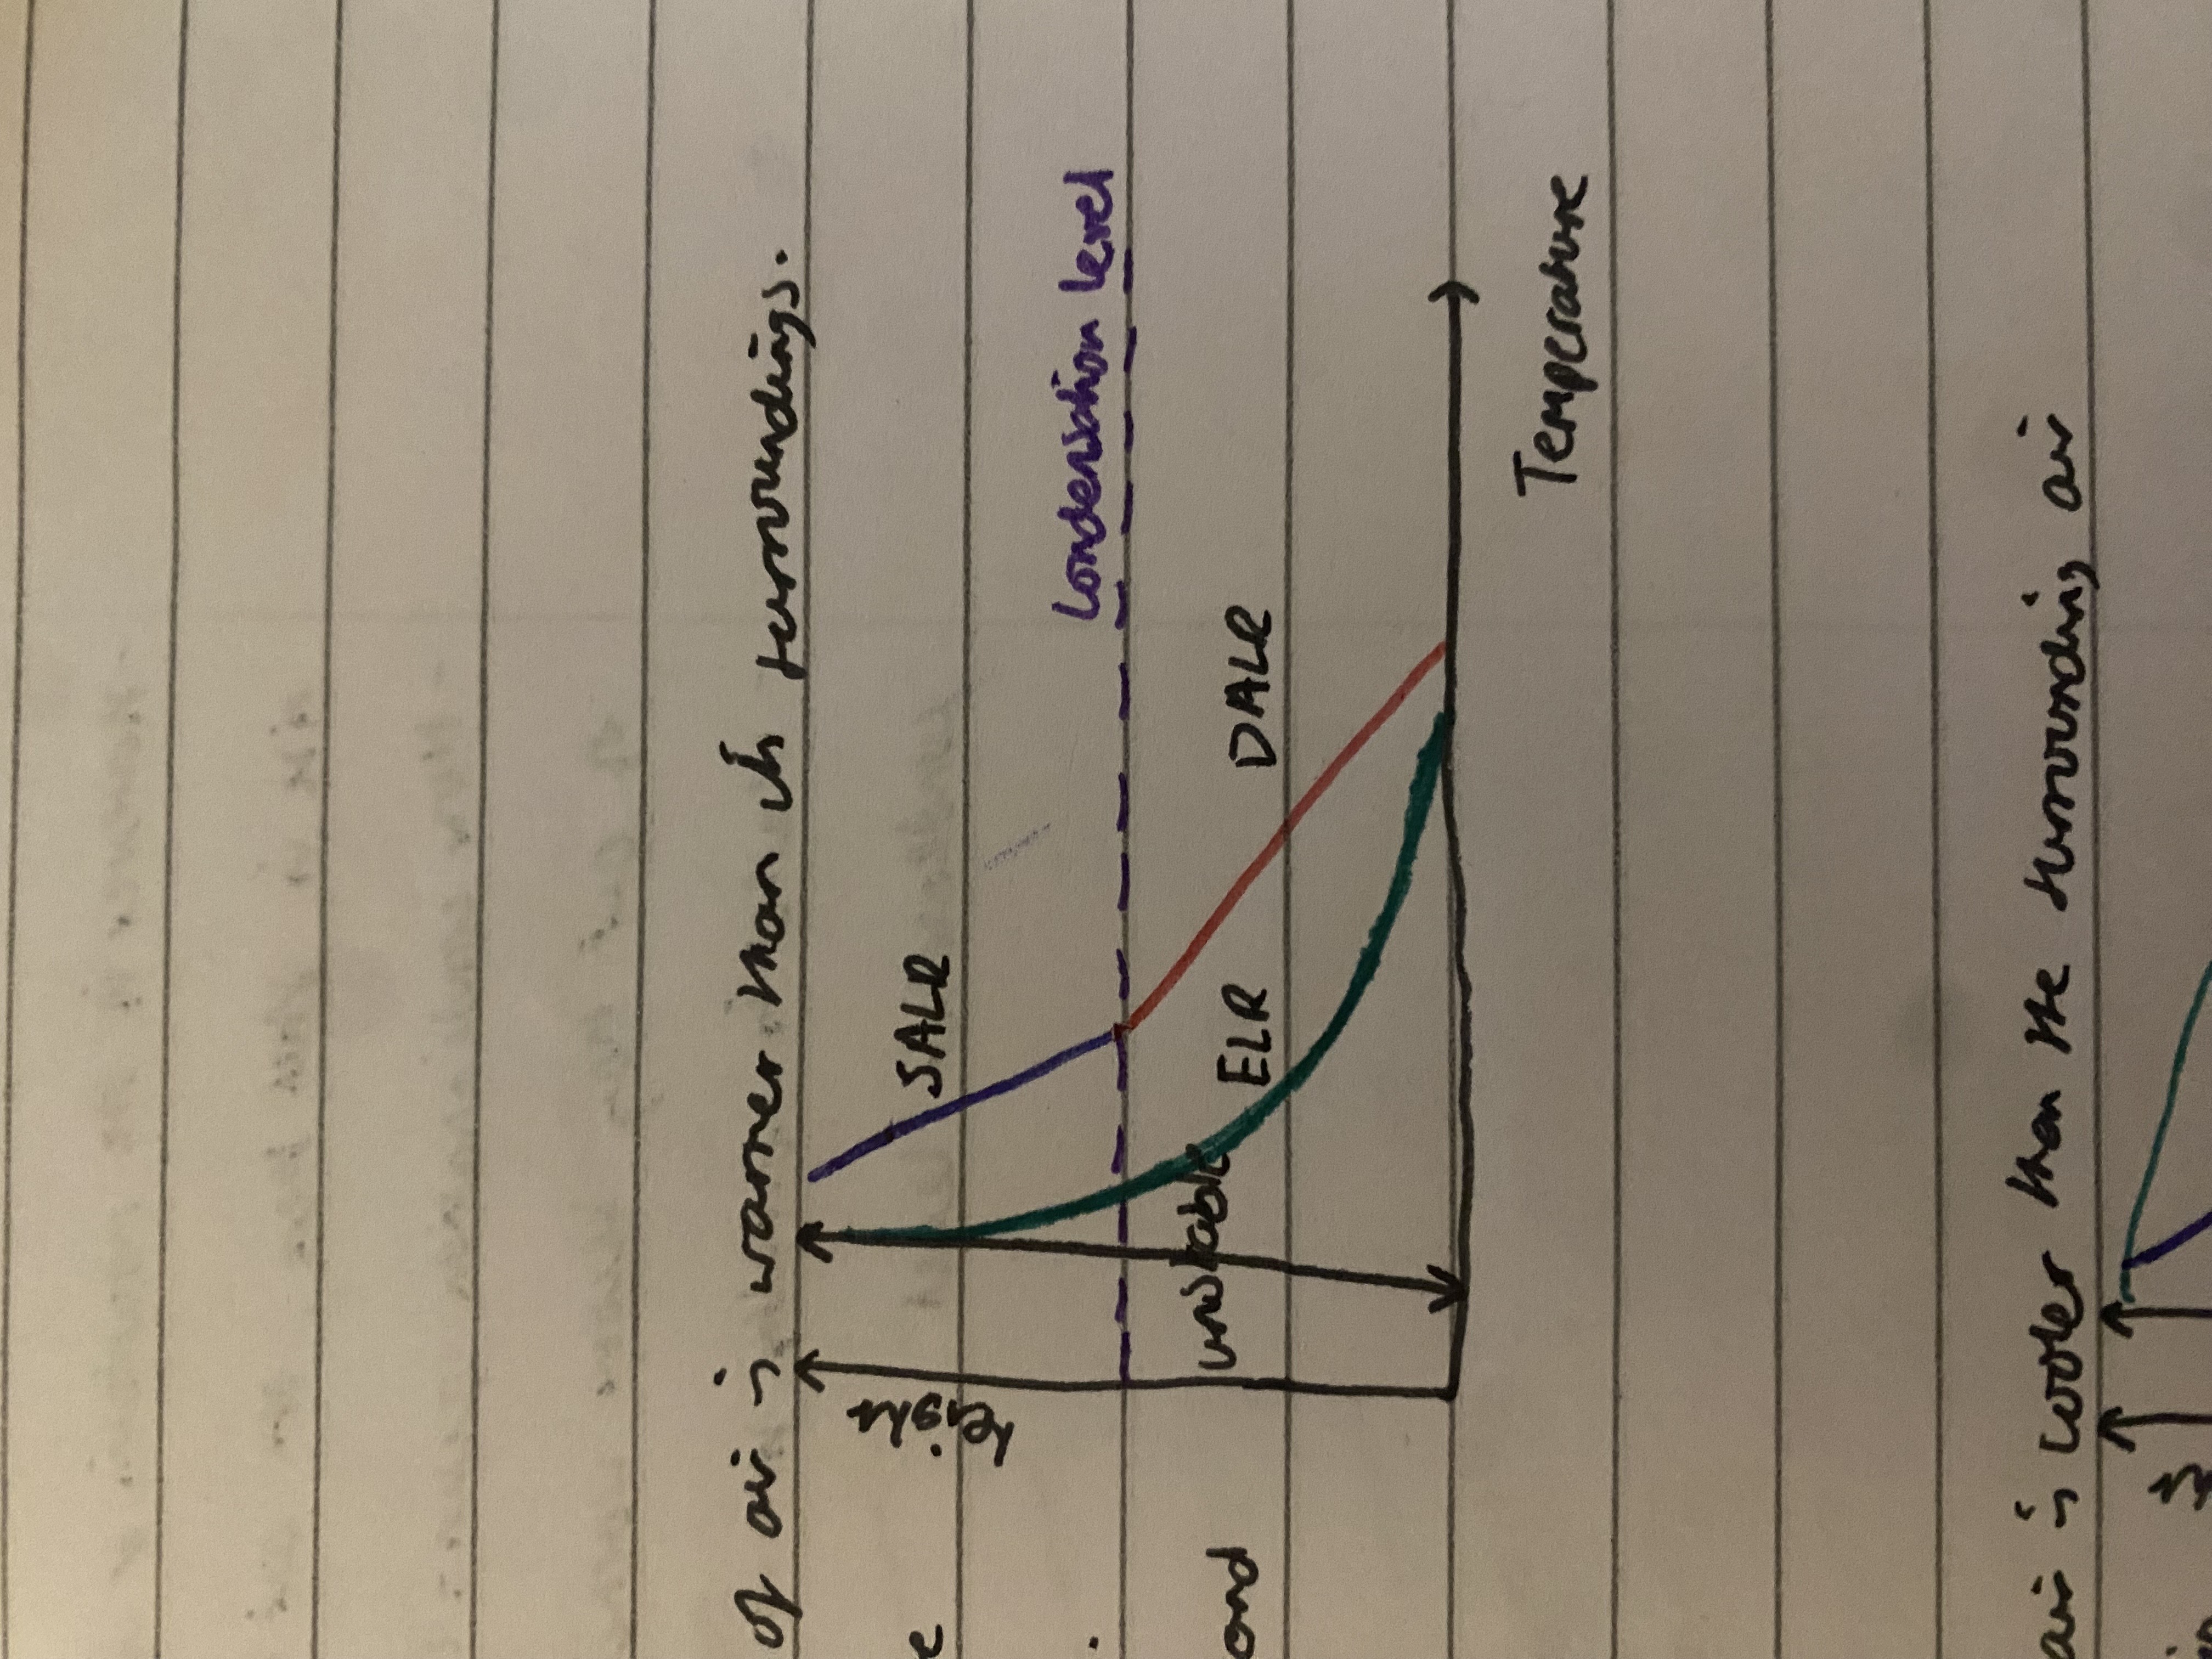 of air is warmer than its surroundings.
e
height
SALR
Condensation level
.
and
unstable
ELR
DALR
Temperature
air is cooler than the surrounding air